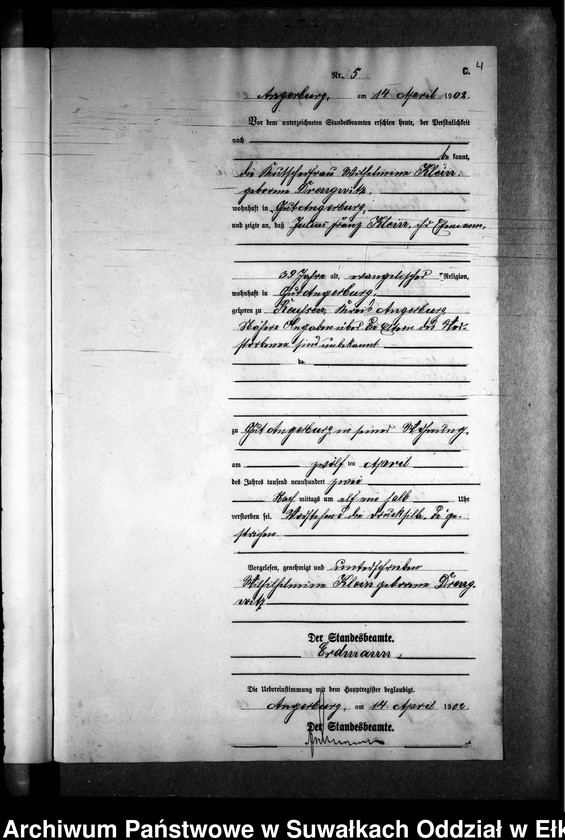 4
Nr. 5 C.
Angerburg, am 14 April 1902.
Vor dem unterzeichneten Standesbeamten erschien heute, der Persönlichkeit
nach
be kannt,
die Kutscherfrau Wilhelmine Klein
geborene
wohnhaft in Gut Angerburg,
und zeigte an, daß Julius Franz Klein, ihr Ehemann,
39 Jahre alt, evangelischer Religion,
wohnhaft in Gut Angerburg,
geboren zu Kreis Angerburg
Nähere Angaben über die Eltern des Ver-
storbenen sind unbekannt
de
zu Gut Angerburg in seiner Wohnung,
am zwölf ten April
des Jahres tausend neunhundert zwei
Nach mittags um elf ein halb Uhr
verstorben sei. Vorstehend die Drucksilbe ge-
strichen.
Vorgelesen, genehmigt und unterschrieben
Wilhelmine Klein geborene
Der Standesbeamte.
Erdmann,
Die Uebereinstimmung mit dem Hauptregister beglaubigt.
Angerburg, am 14 April 1902.
Der Standesbeamte.
Archiwum Państwowe w Suwałkach Oddział w Ełk